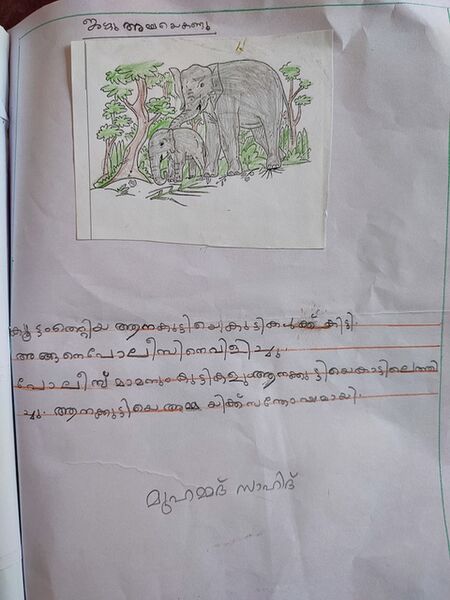 ഇങ്ങു അമ്മയെകണ്ടു
കൂട്ടംതെറ്റിയ ആനകുട്ടിയെകുട്ടികൾക്ക് കിട്ടി.
അങ്ങനെപോലീസിനെവിളിച്ചു.
പോലീസ് മാമനുംകുട്ടികളുആനക്കുട്ടിയെകാട്ടിലെത്തി
ച്ചു. ആനക്കുട്ടിയെ അമ്മ യ്ക്ക്സന്തോഷമായി.
മുഹമ്മദ് സാഹിദ്